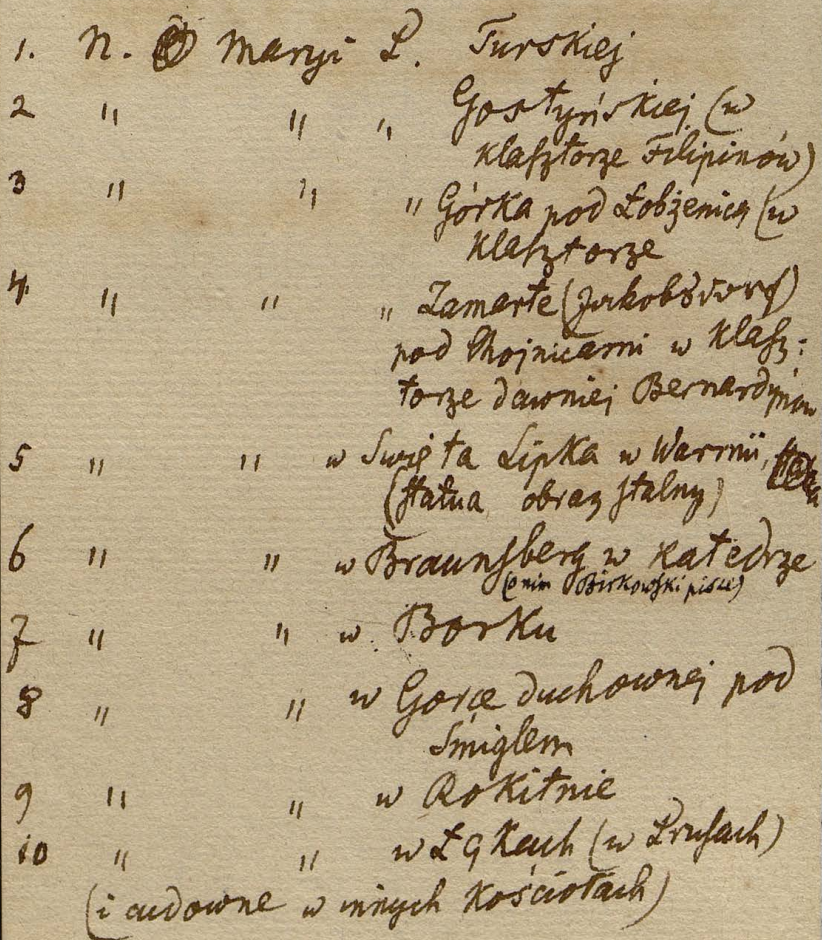 1. N. Maryi P. Turskiej
2 " " " Gostyńskiej (w
klasztorze Filipinów)
3 " " " Górka pod Łobżenicą (w
klasztorze
4. " " " Zamarte (Jakobsdorf)
pod Chojnicami w klasz:
torze dawniej Bernardynów
5 " " w Święta Lipka w Warmii,
(statua, obraz stalny)
6 " " w Braunsberg w katedrze
(o nim Birkowski pisze)
7 " " w Borku
8 " " w Gorce duchownej pod
Śmiglem
9 " " w Rokitnie
10 " " w Łąkach (w Prusach)
(i cudowne w innych kościołach)